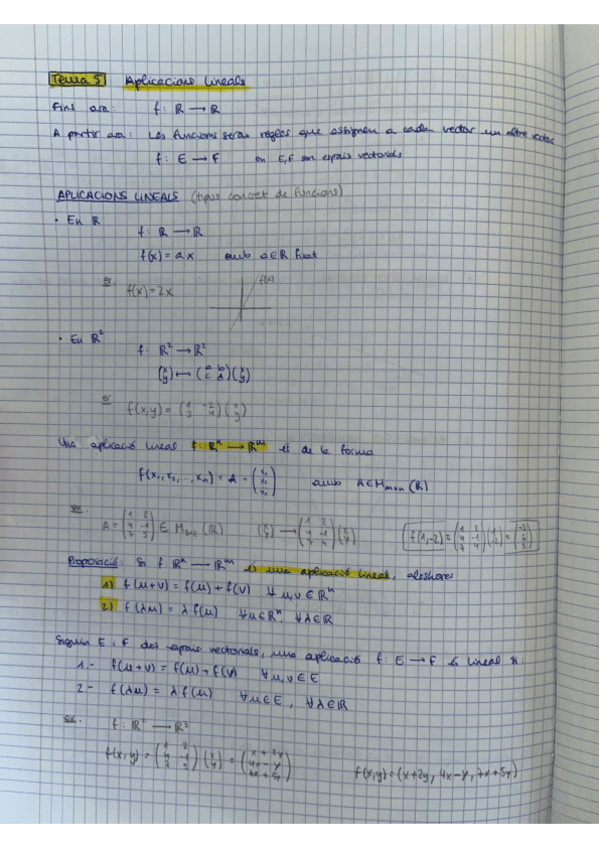 Tema 5 Aplicacions lineals
Fins ara: f: ℝ → ℝ
A partir ara: Les funcions seran regles que assignen a cada vector un altre vector
f: E → F on E, F són espais vectorials
APLICACIONS LINEALS (tipus concret de funcions)
• En ℝ
f: ℝ → ℝ
f(x) = ax amb a∈ℝ fixat
ex.
f(x) = 2x
f(x)
• En ℝ²
f: ℝ² → ℝ²
(x y) ↦ (a b c d)(x y)
ex
f(x,y) = (1 -2 3 4)(x y)
Una aplicació lineal f: ℝⁿ → ℝᵐ és de la forma
f(x₁, x₂, ..., xₙ) = A · (x₁ x₂ xₙ) amb A∈Mₘₓₙ(ℝ)
ex.
A = (1 2 4 -1 7 5) ∈ M₃ₓ₂(ℝ) (x y) → (1 2 4 -1)(x y) f(1,-2) =
Proposició: Si f: ℝⁿ → ℝᵐ és una aplicació lineal, aleshores
1) f(u+v) = f(u) + f(v) ∀ u,v ∈ ℝⁿ
2) f(λu) = λ f(u) ∀u∈ℝⁿ, ∀λ∈ℝ
Siguin E i F dos espais vectorials, una aplicació f: E → F és lineal si:
1.- f(u+v) = f(u) + f(v) ∀u,v ∈ E
2.- f(λu) = λ f(u) ∀u∈E, ∀λ∈ℝ
ex. f: ℝ² → ℝ³
f(x,y) = (1 2 4 -1 7 5)(x y) = (x + 2y 4x - y 7x + 5y) f(x,y) = (x+2y, 4x-y, 7x+5y)